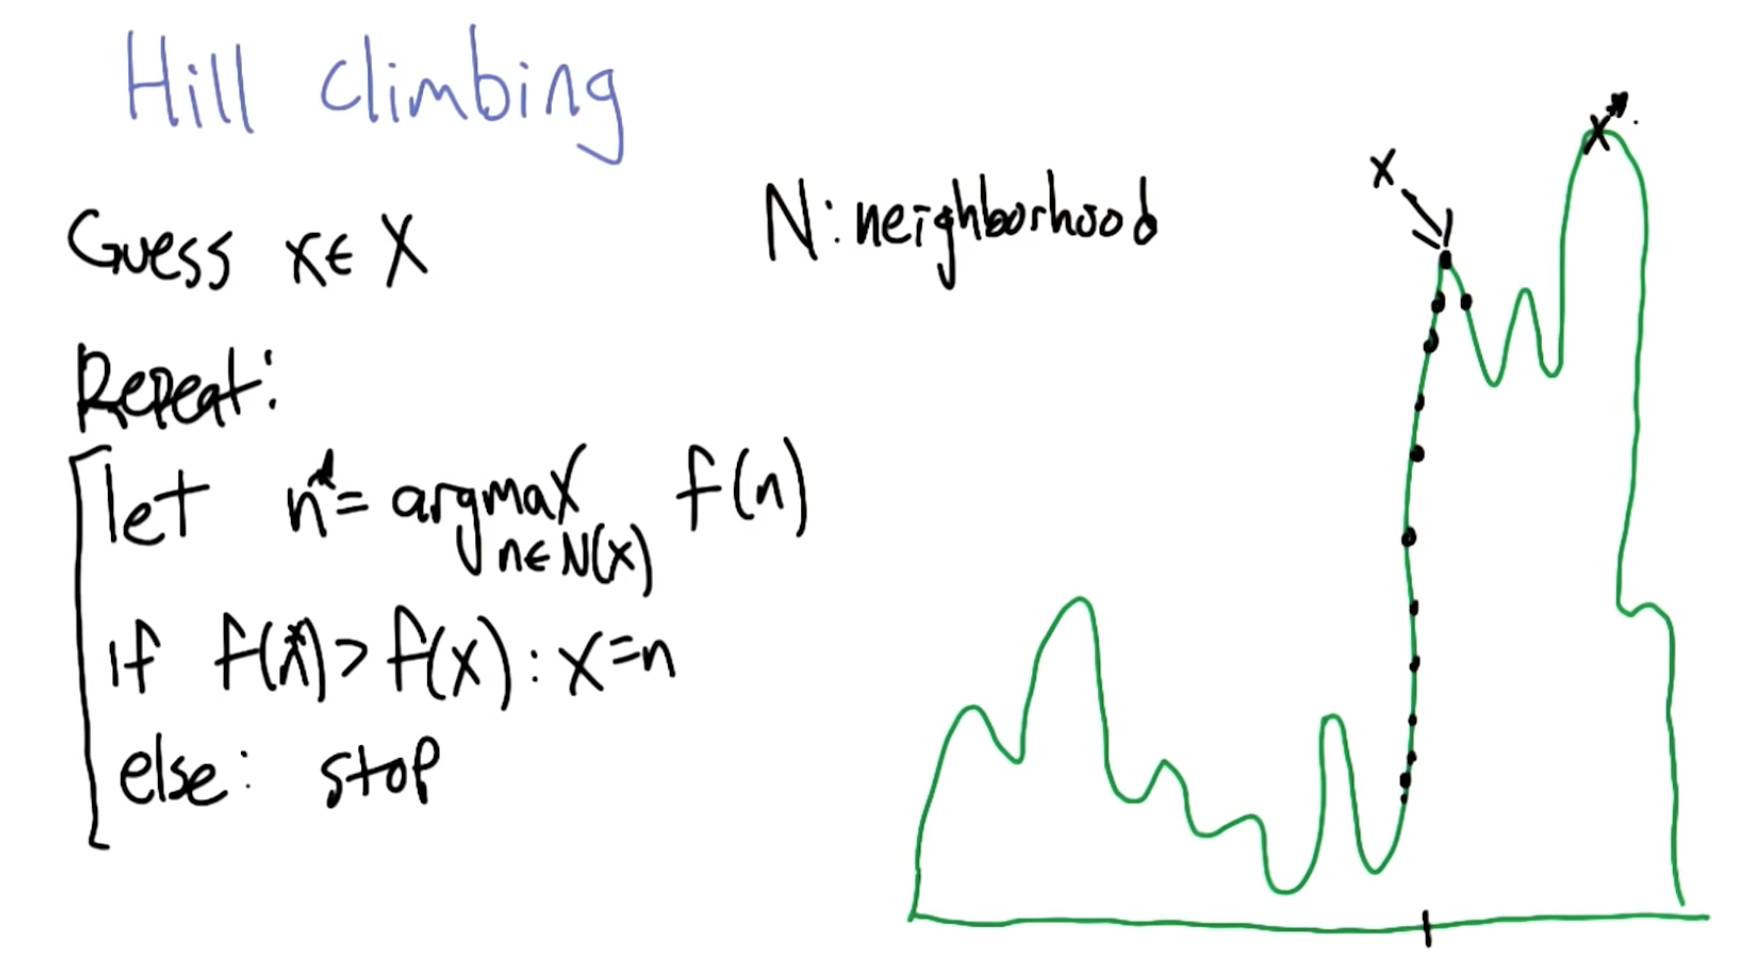 Hill climbing
Guess x∈X
N: neighborhood
Repeat:
let n*= argmax f(n)
n∈N(x)
if f(n*)>f(x): x=n
else: stop
x
x*